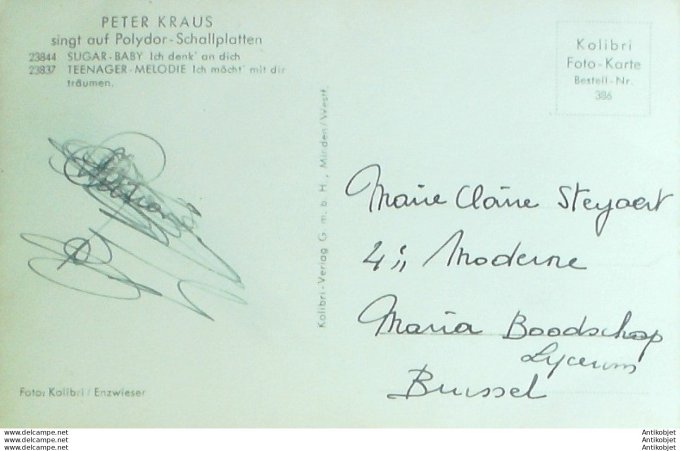 PETER KRAUS
singt auf Polydor-Schallplatten
23844 SUGAR-BABY Ich denk' an dich
23837 TEENAGER-MELODIE Ich möcht' mit dir
träumen.
Kolibri
Foto-Karte
Bestell-Nr.
386
Kolibri-Verlag G.m.b.H., Minden/Westf.
Marie Claire Steyaert
4 Moderne
Maria Boodschap
Lyceum
Brussel
Foto: Kolibri / Enzwieser
www.antikobjet.com
www.antikobjet.com
www.antikobjet.com
Antikobjet
Antikobjet
Antikobjet